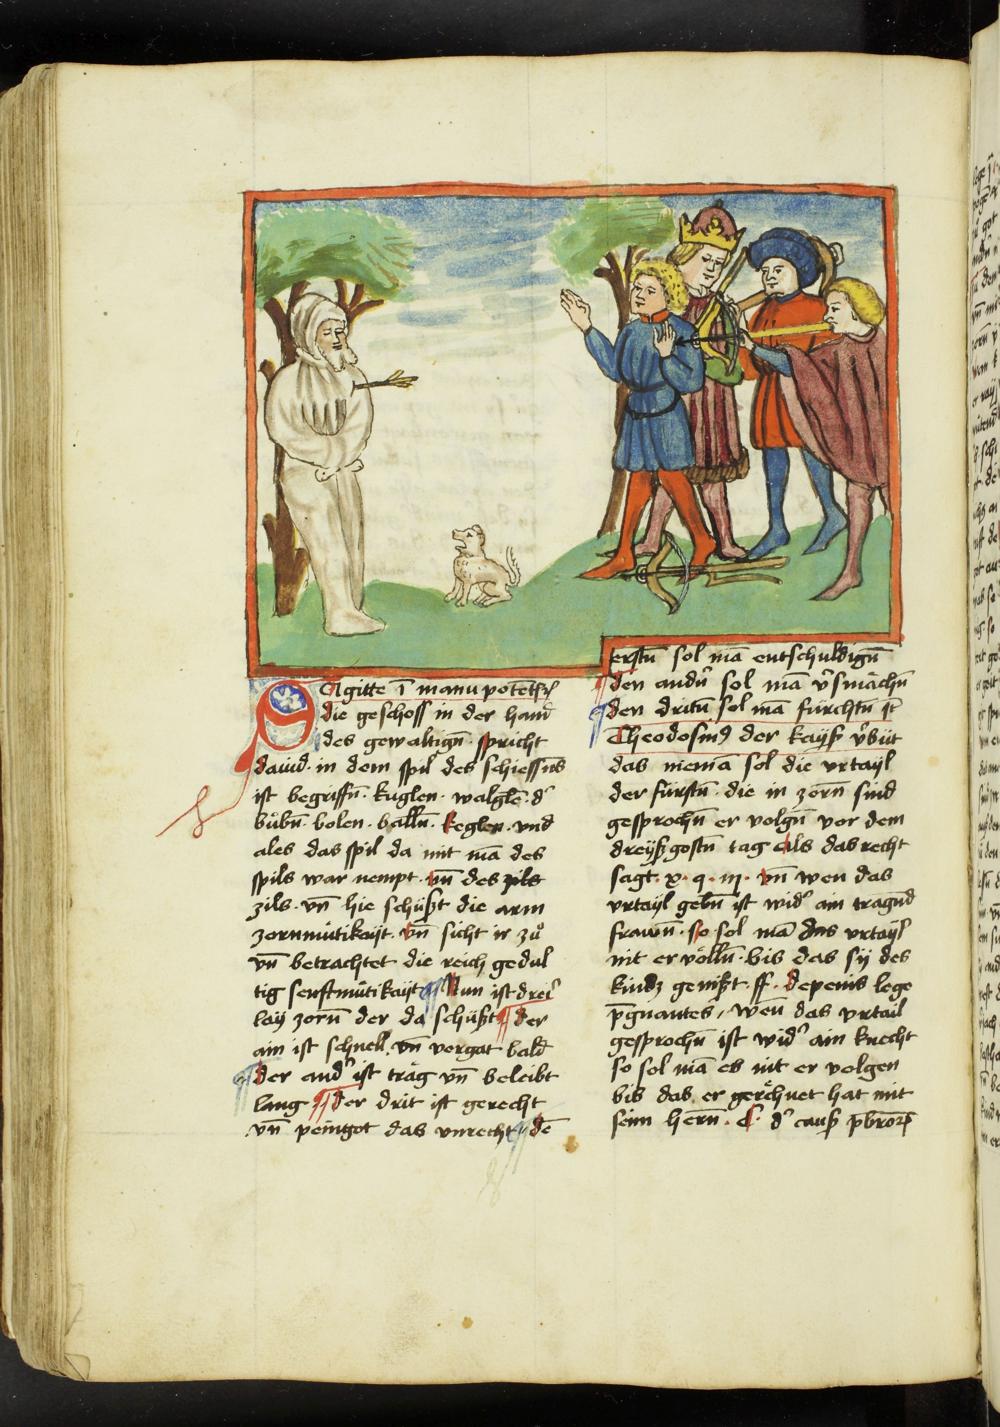 Sagitte ī manu potētis
die geschoss in der hand
des gewaltign̄. spricht
dauid. in dem spil des schiessens
ist begriffn̄. kuglen. walglē. d'
bůbn̄. bolen. balln̄. keglen. vnd
ales das spil da mit mā des
spils war nempt. vn̄ des zils
zils. vn̄ hie schüßt die arm
zornmütikayt. vn̄ sicht ir zů
vn̄ betrachtet die reich gedul
tig senftmütikayt Nun ist drei'
lay zorn̄ der da schüßt der
ain ist schnell. vn̄ vergat bald
der and' ist träg vn̄ beleibt
lang der drit ist gerecht
vn̄ peingot das vnrecht dē
erstn̄ sol mā entschuldign̄
den andn̄ sol mā v'smächn̄
den dritn̄ sol mā fürchtn̄
Theodosius der kayß v'büt
das niemā sol die vrtayl
der fürstn̄. die in zorn̄ sind
gesprochn̄ er volgn̄ vor dem
dreyßgostn̄ tag als das recht
sagt. x. q. iij. vn̄ wen das
vrtayl gebn̄ ist wid' ain tragnd
frawn̄. so sol mā das vrtayl
nit er völln̄. bis das sy des
kindz genißt. ff. de penis lege
p̄gnantes, wen̄ das vrtail
gesprochn̄ ist wid' ain knecht
so sol mā es nit er volgen
bis das er gerechnet hat mit
seim hern̄. C. d' cauß